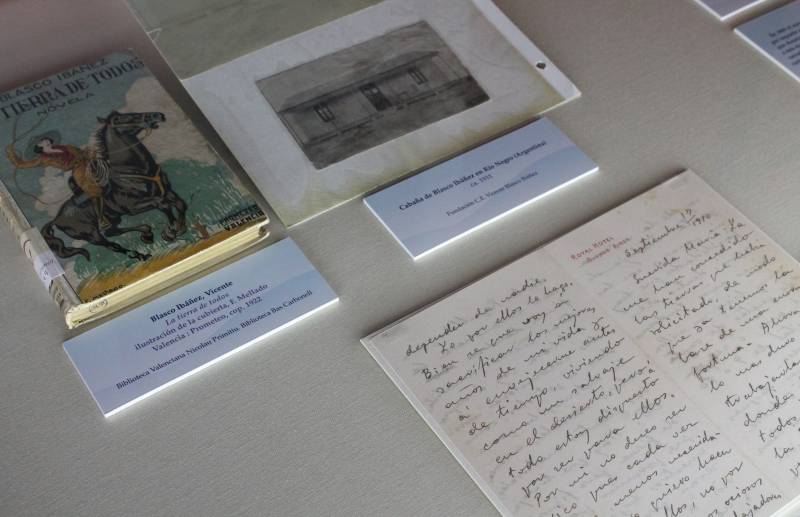 BLASCO IBÁÑEZ
TIERRA DE TODOS
NOVELA
PROMETEO
VALENCIA
Blasco Ibáñez, Vicente
La tierra de todos
ilustración de la cubierta, F. Mellado
Valencia : Prometeo, cop. 1922
Biblioteca Valenciana Nicolau Primitiu. Biblioteca Bas Carbonell
Cabaña de Blasco Ibáñez en Río Negro (Argentina)
ca. 1911
Fundación C.E. Vicente Blasco Ibáñez
depender de nadie.
Lo por ellos lo hago.
Bien se que voy á
sacrificar los mejores
años de mi vida y
á envejecerme antes
de tiempo, viviendo
como un salvaje
en el desierto, pero á
todo estoy dispuesto
por ser para ellos.
Por mi no deseo ser
rico pues cada vez
menos
quiero hacer
ellos, no por
ROYAL HOTEL
BUENOS AIRES
Septiembre 17
1910
Querida María: Ya
me han concedido
las tierras que había
solicitado de modo
que ya tenemos la
base de una gran
fortuna. Ahora
lo mas duro
trabajarla
donde
todos
la